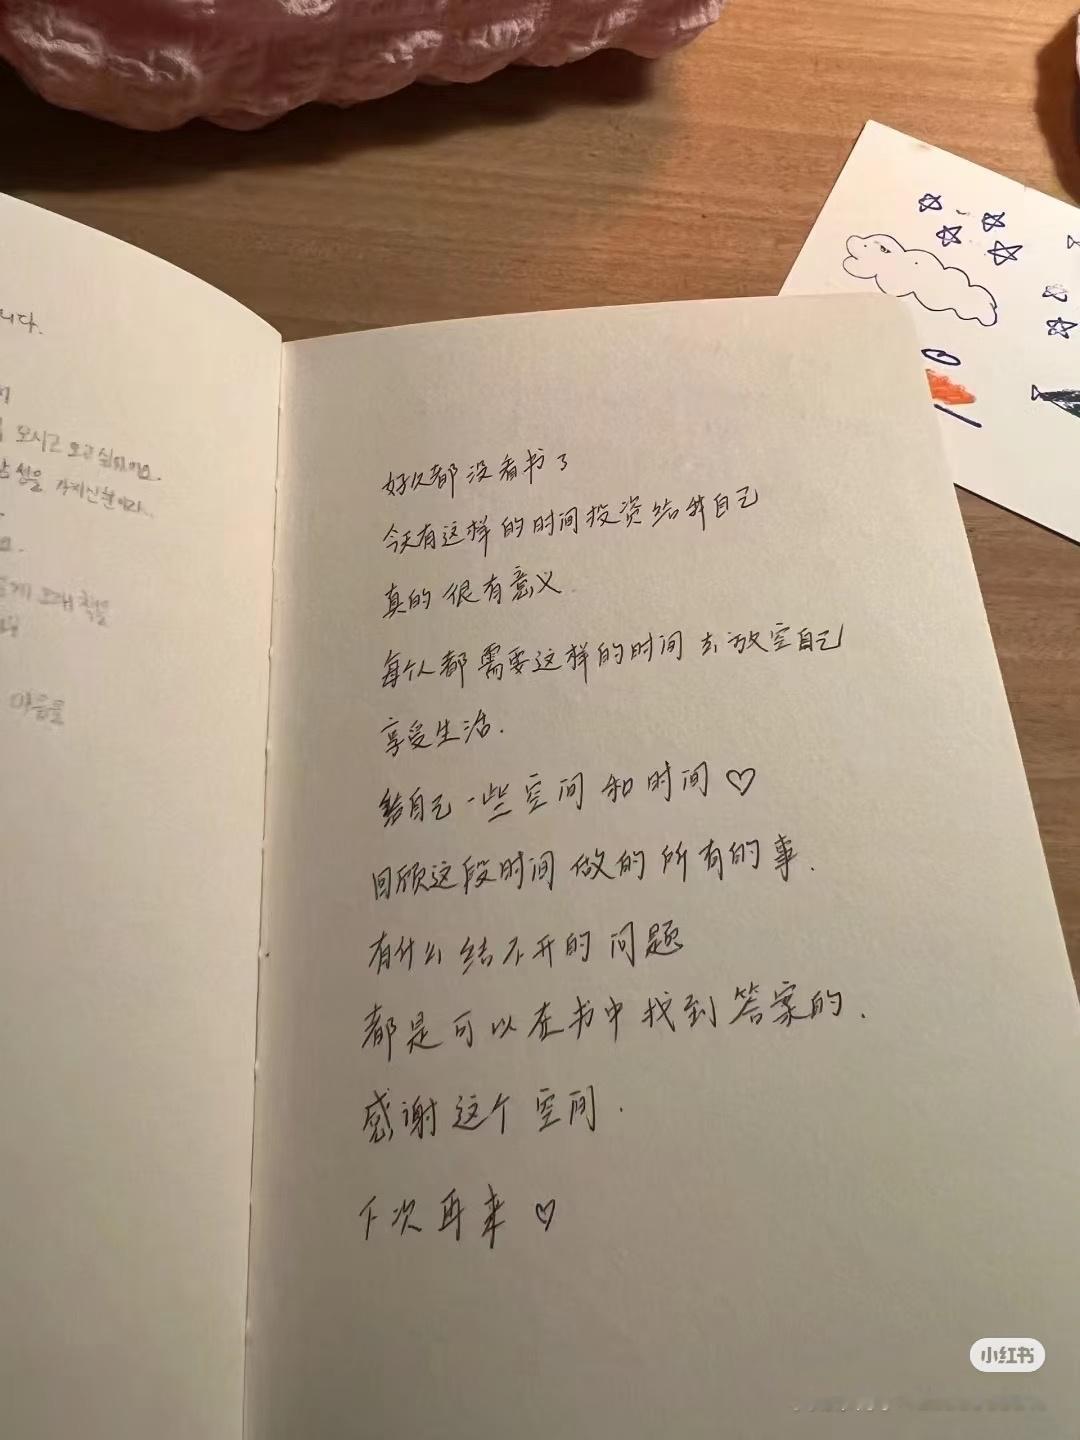 니다.
오시고 오고 싶
을
게 오래 책을
마음을
好久都没看书了
今天有这样的时间投资给我自己
真的很有意义.
每个人都需要这样的时间去放空自己
享受生活.
给自己一些空间和时间♡
回顾这段时间做的所有的事.
有什么结不开的问题
都是可以在书中找到答案的.
感谢这个空间.
下次再来♡
小红书